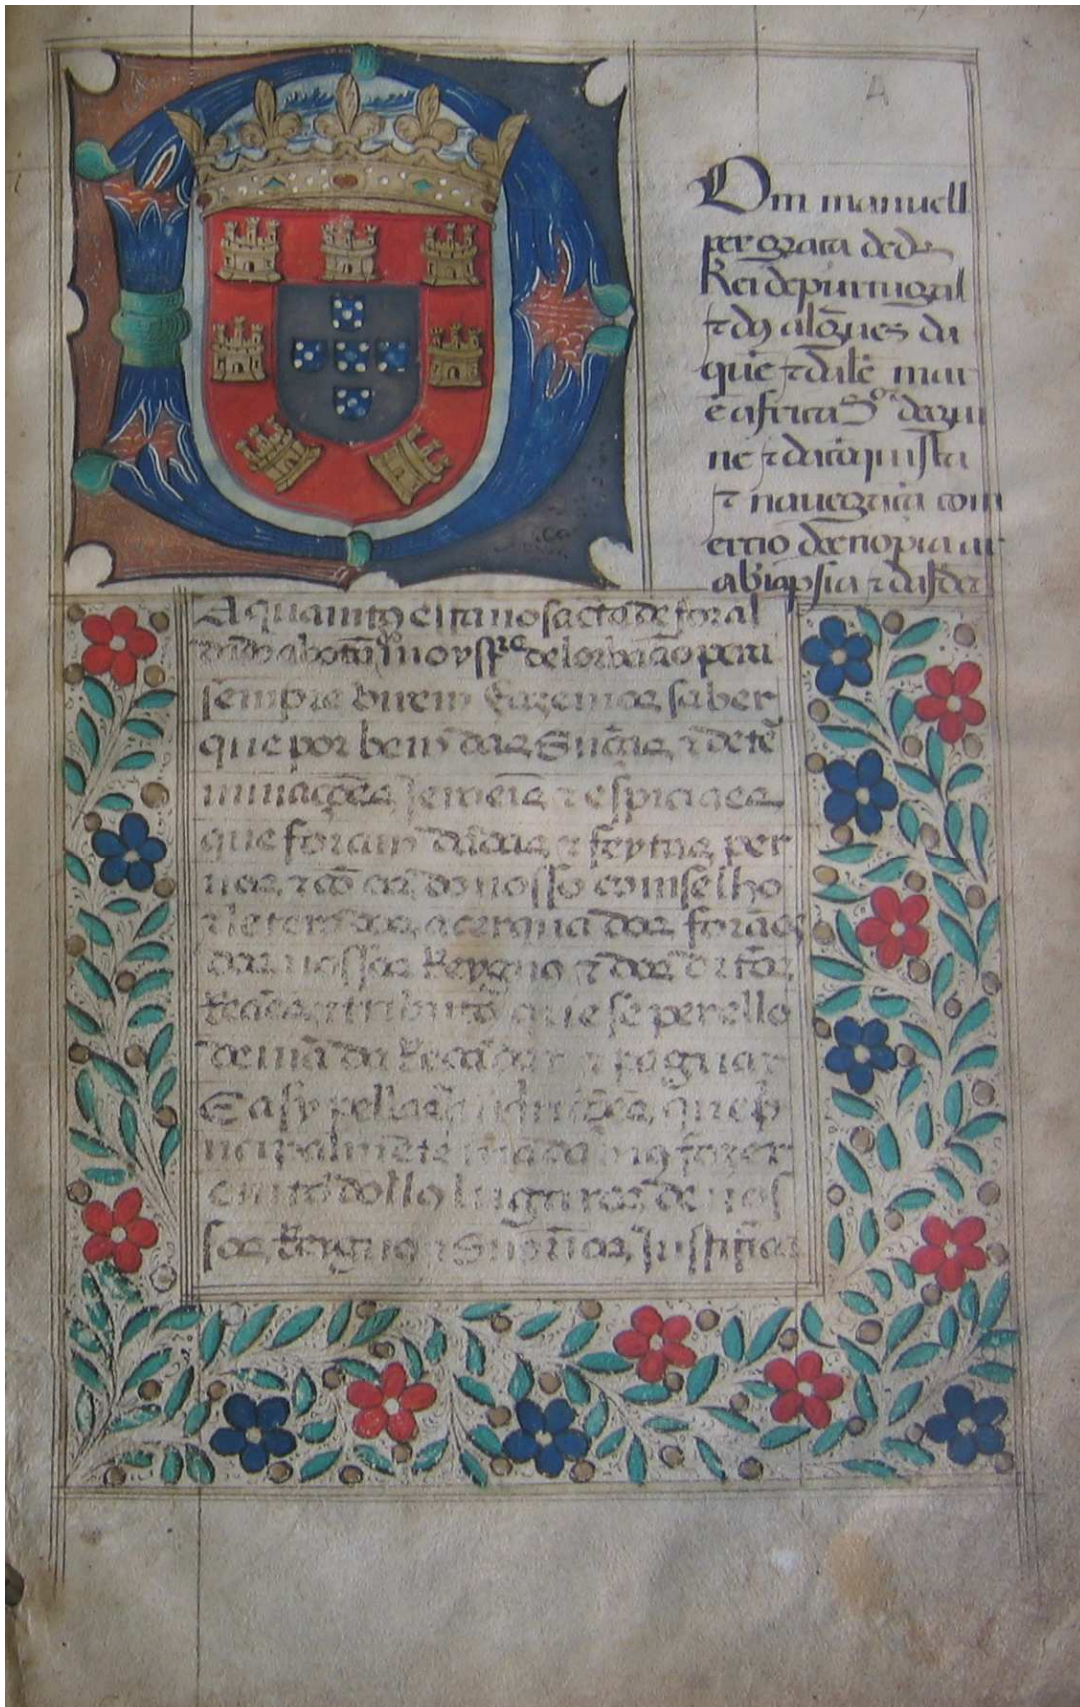 A
Dom manuell
per graça de ds
Rei de purtugal
⁊ dos algues da
que ⁊ dale mar
e africa Sor de gui
ne ⁊ da conquista
⁊ navegaçã com
ercio de etiopia ar
abia psia ⁊ da Jndia
A quamtos esta nosa carta de foral
dado
de lorvãao pera
sempre virem fazemos saber
que por bem das Snças ⁊ dete
minaçõees Jeneraes ⁊ espiciaees
que foram dadas ⁊ feytas per
nos ⁊ cõ os do nosso comselho
⁊ leterados acerqua dos foraes
dos nossos Reygnos ⁊ dos dirtos
Reaes ⁊ tributos que se per ello
deviã da Recadar ⁊ paguar
E asy pellas Inquiriçõees que p
ncipalmēte mādamos fazer
em todollos lugares de nos
sos Reygnos ⁊ Snorios Justifica